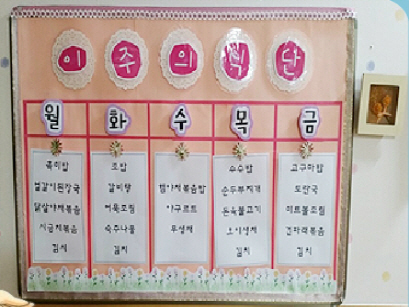 이 주 의 식 단
월 화 수 목 금
흑미밥
얼갈이된장국
닭살야채볶음
시금치볶음
김치
조밥
갈비탕
어묵조림
숙주나물
김치
야채볶음밥
야구르트
무생채
수수밥
순두부찌개
돈육불고기
오이생채
김치
고구마밥
토란국
미트볼조림
건파래볶음
김치